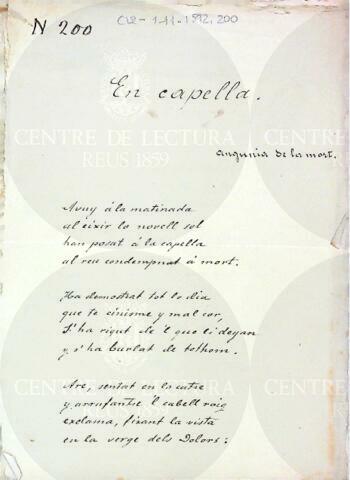 N 200
CL2-1-11-1912, 200
En capella.
CENTRE DE LECTURA
REUS 1859
angunia de la mort.
Avuy á la matinada
al eixir lo novell sol
han posat á la capella
al reu condempnat á mort.
Ha demostrat tot lo dia
que te cinisme y mal cor,
S'ha rigut de'l que li deyan
y s'ha burlat de tothom.
CENTRE DE LECTURA
REUS 1859
Are, sentat en lo catre
y arrufantse'l cabell roig
exclama, fixant la vista
en la verge dels Dolors: